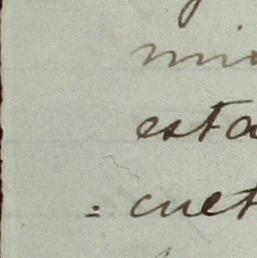 mi
esta
= cuet